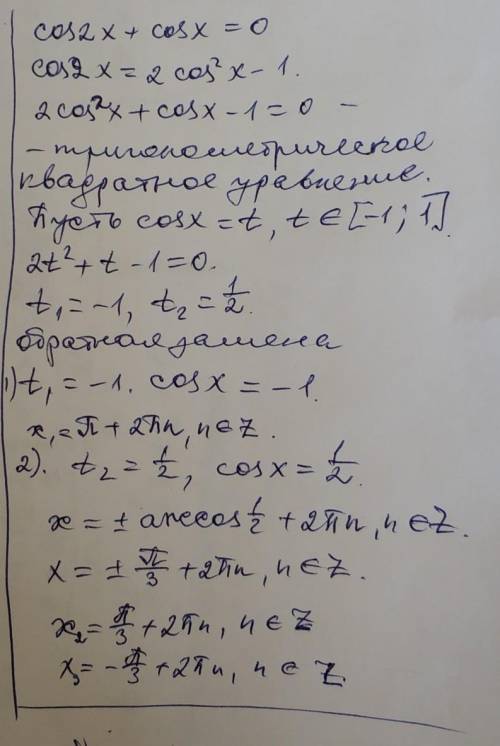 cos2x + cosx = 0
cos2x = 2cos²x - 1.
2cos²x + cosx - 1 = 0 -
- тригонометрическое
квадратное уравнение.
Пусть cosx = t, t ∈ [-1; 1].
2t² + t - 1 = 0.
t₁ = -1, t₂ = 1/2.
обратная замена
1) t₁ = -1. cosx = -1.
x₁ = π + 2πn, n ∈ Z.
2). t₂ = 1/2, cosx = 1/2.
x = ± arccos 1/2 + 2πn, n ∈ Z.
x = ± π/3 + 2πn, n ∈ Z.
x₂ = π/3 + 2πn, n ∈ Z
x₃ = - π/3 + 2πn, n ∈ Z.